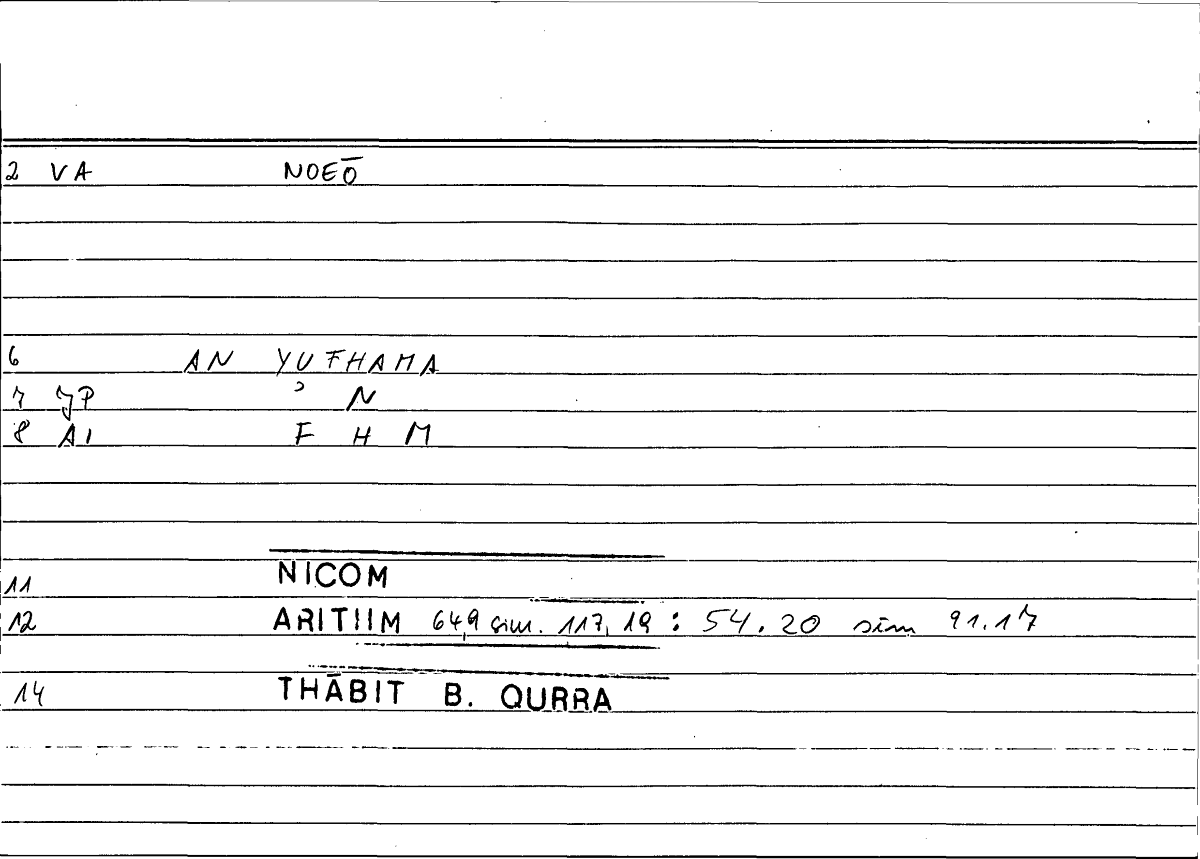 2 VA NOEŌ
6 AN YUFHAMA
7 JP ʾ N
8 AI F H M
11 NICOM
12 ARITIIM 64,9 sim. 117, 19 : 54.20 sim 91.17
14 THĀBIT B. QURRA